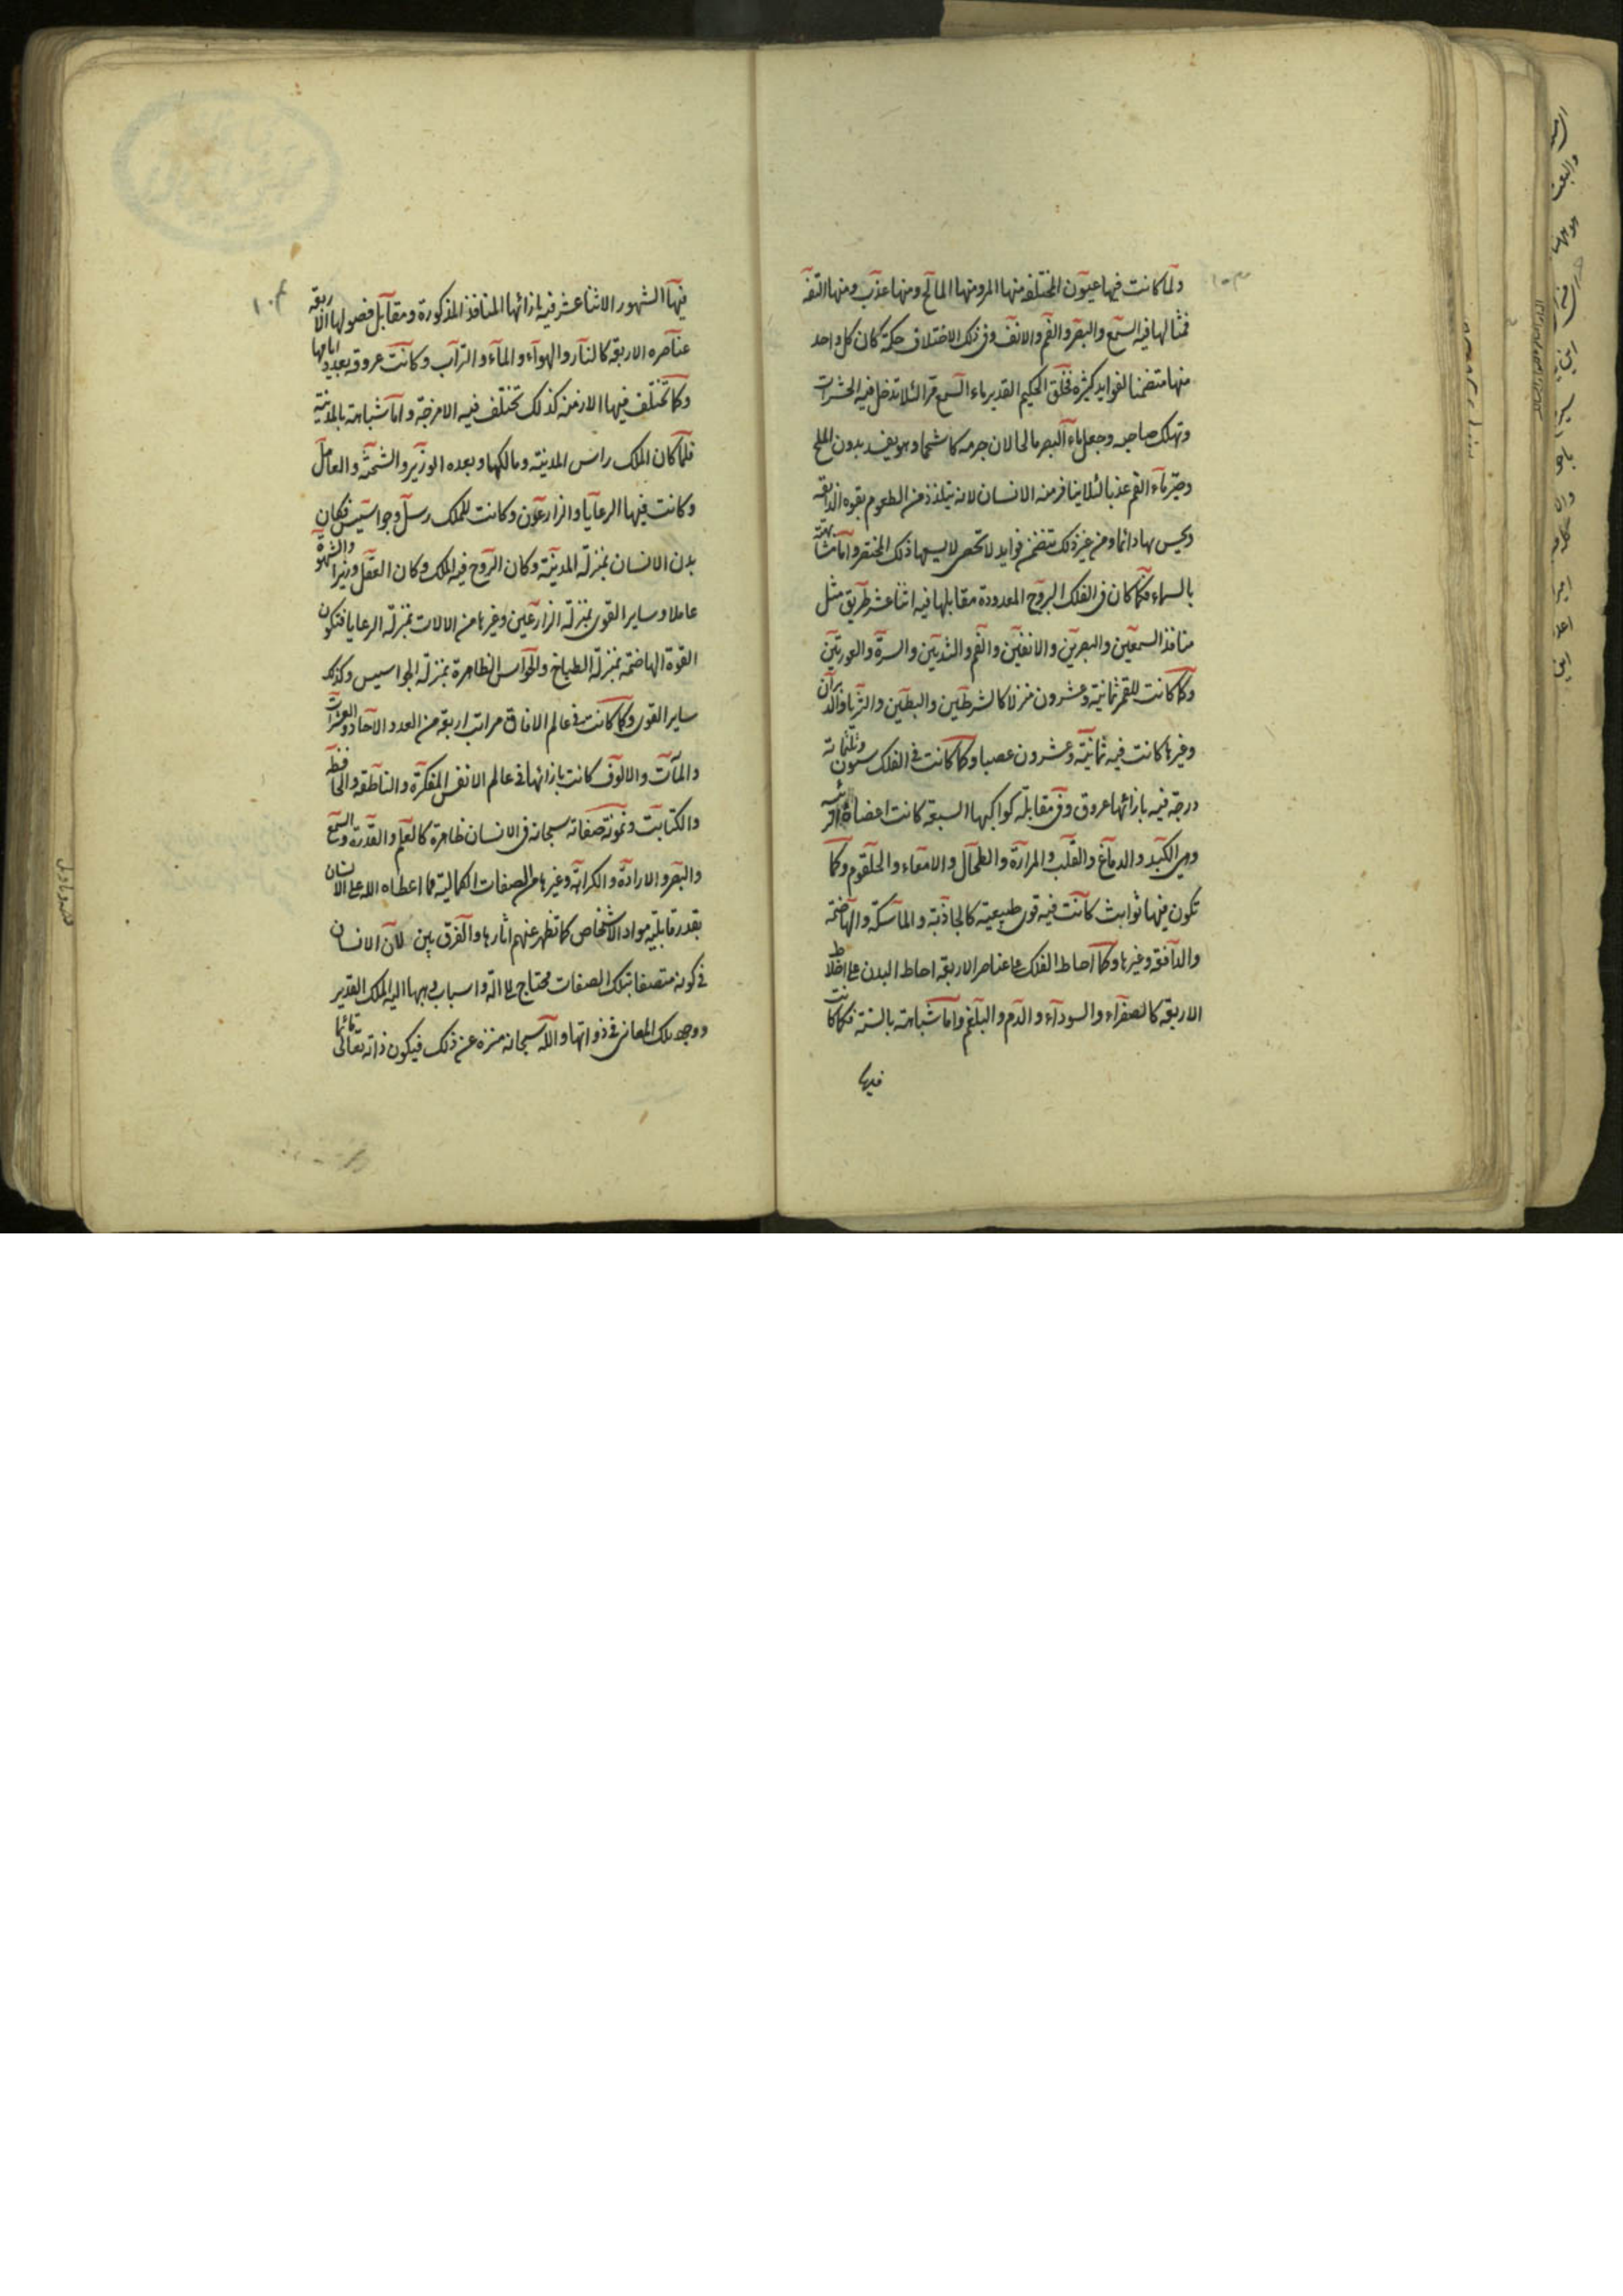 ولما كانت فيها عيون المختلفه منها المر ومنها المالح ومنها عذب ومنها التفه
فمثالها فيه السمع والبصر والفم والانف وفي ذلك الاختلاف حكمة كان كل واحد
منها متضمنا لفوايد كثيره فخلق الحكيم القدير ماء السمع مرا لئلا تدخل فيه الحشرات
وتهلك صاحبه وجعل ماء البصر مالحا لان جرمه كان شحما وهو يفسد بدون الملح
وصير ماء الفم عذبا لئلا يتنافر منه الانسان لانه يتلذذ من الطعوم بقوه الذايقه
ويحس بها دائما ومن غير ذلك تتضمن فوايد لا تحصى لا يسعها ذلك المختصر واما مشابهته
بالسماء فكما كان في الفلك البروج المعدودة مقابلها فيه اثنا عشر طريق مثل
منافذ السمعين والبصرين والانفين والفم والثديين والسرة والعورتين
وكما كانت للقمر ثمانية وعشرون منزلا كالشرطين والبطين والثريا والدبران
وغيرها كانت فيه ثمانية وعشرون عصبا وكما كانت في الفلك ستون وثلثمائة
درجة فيه بازائها عروق وفي مقابلة كواكبها السبعة كانت اعضاء
وهي الكبد والدماغ والقلب والمرارة والطحال والامعاء والحلقوم وكما
تكون فيها ثوابت كانت فيه قوى طبيعية كالجاذبة والماسكة والهاضمة
والدافقة وغيرها وكما احاط الفلك على عناصر الاربعة احاط البدن على اخلاط
الاربعة كالصفراء والسوداء والدم والبلغم واما شباهته بالسنة فكما كانت
فيها
١٠۴
فيها الشهور الاثنا عشر فيه بازائها المنافذ المذكورة ومقابل فصولها الاربعة
عناصره الاربعة كالنار والهواء والماء والتراب وكانت عروقه بعدد ايامها
وكما تختلف فيها الازمنة كذلك تختلف فيه الامزجة واما شباهته بالمدينة
فلما كان الملك رائس المدينة ومالكها وبعده الوزير والشحنة والعامل
وكانت فيها الرعايا والزارعون وكانت للملك رسل وجواسيس فكان
بدن الانسان بمنزلة المدينة وكان الروح فيه الملك وكان العقل وزيرا والشهوة
عاملا وساير القوى بمنزلة الزارعين وغيرها من الالات بمنزلة الرعايا فتكون
القوة الهاضمة بمنزلة الطباخ والحواس الظاهرة بمنزلة الجواسيس وكذلك
ساير القوى وكما كانت في عالم الافاق مراتب اربعة من العدد الاحاد والعشرات
والمآت والالوف كانت بازائها في عالم الانفس المفكرة والناطقة والحافظة
والكتابت ونمونة صفاته سبحانه في الانسان ظاهرة كالعلم والقدرة والسمع
والبصر والارادة والكراهة وغيرها من الصفات الكمالية مما اعطاه الله على الانسان
بقدر قابلية مواد الاشخاص كما تظهر عنهم اثارها والفرق بين لان الانسان
في كونه متصفا بتلك الصفات محتاج على الة واسباب وهبها اليه الملك القدير
ووجد تلك المعاني في ذواتها والله سبحانه منزه عن ذلك فيكون ذاته تعالى قائما